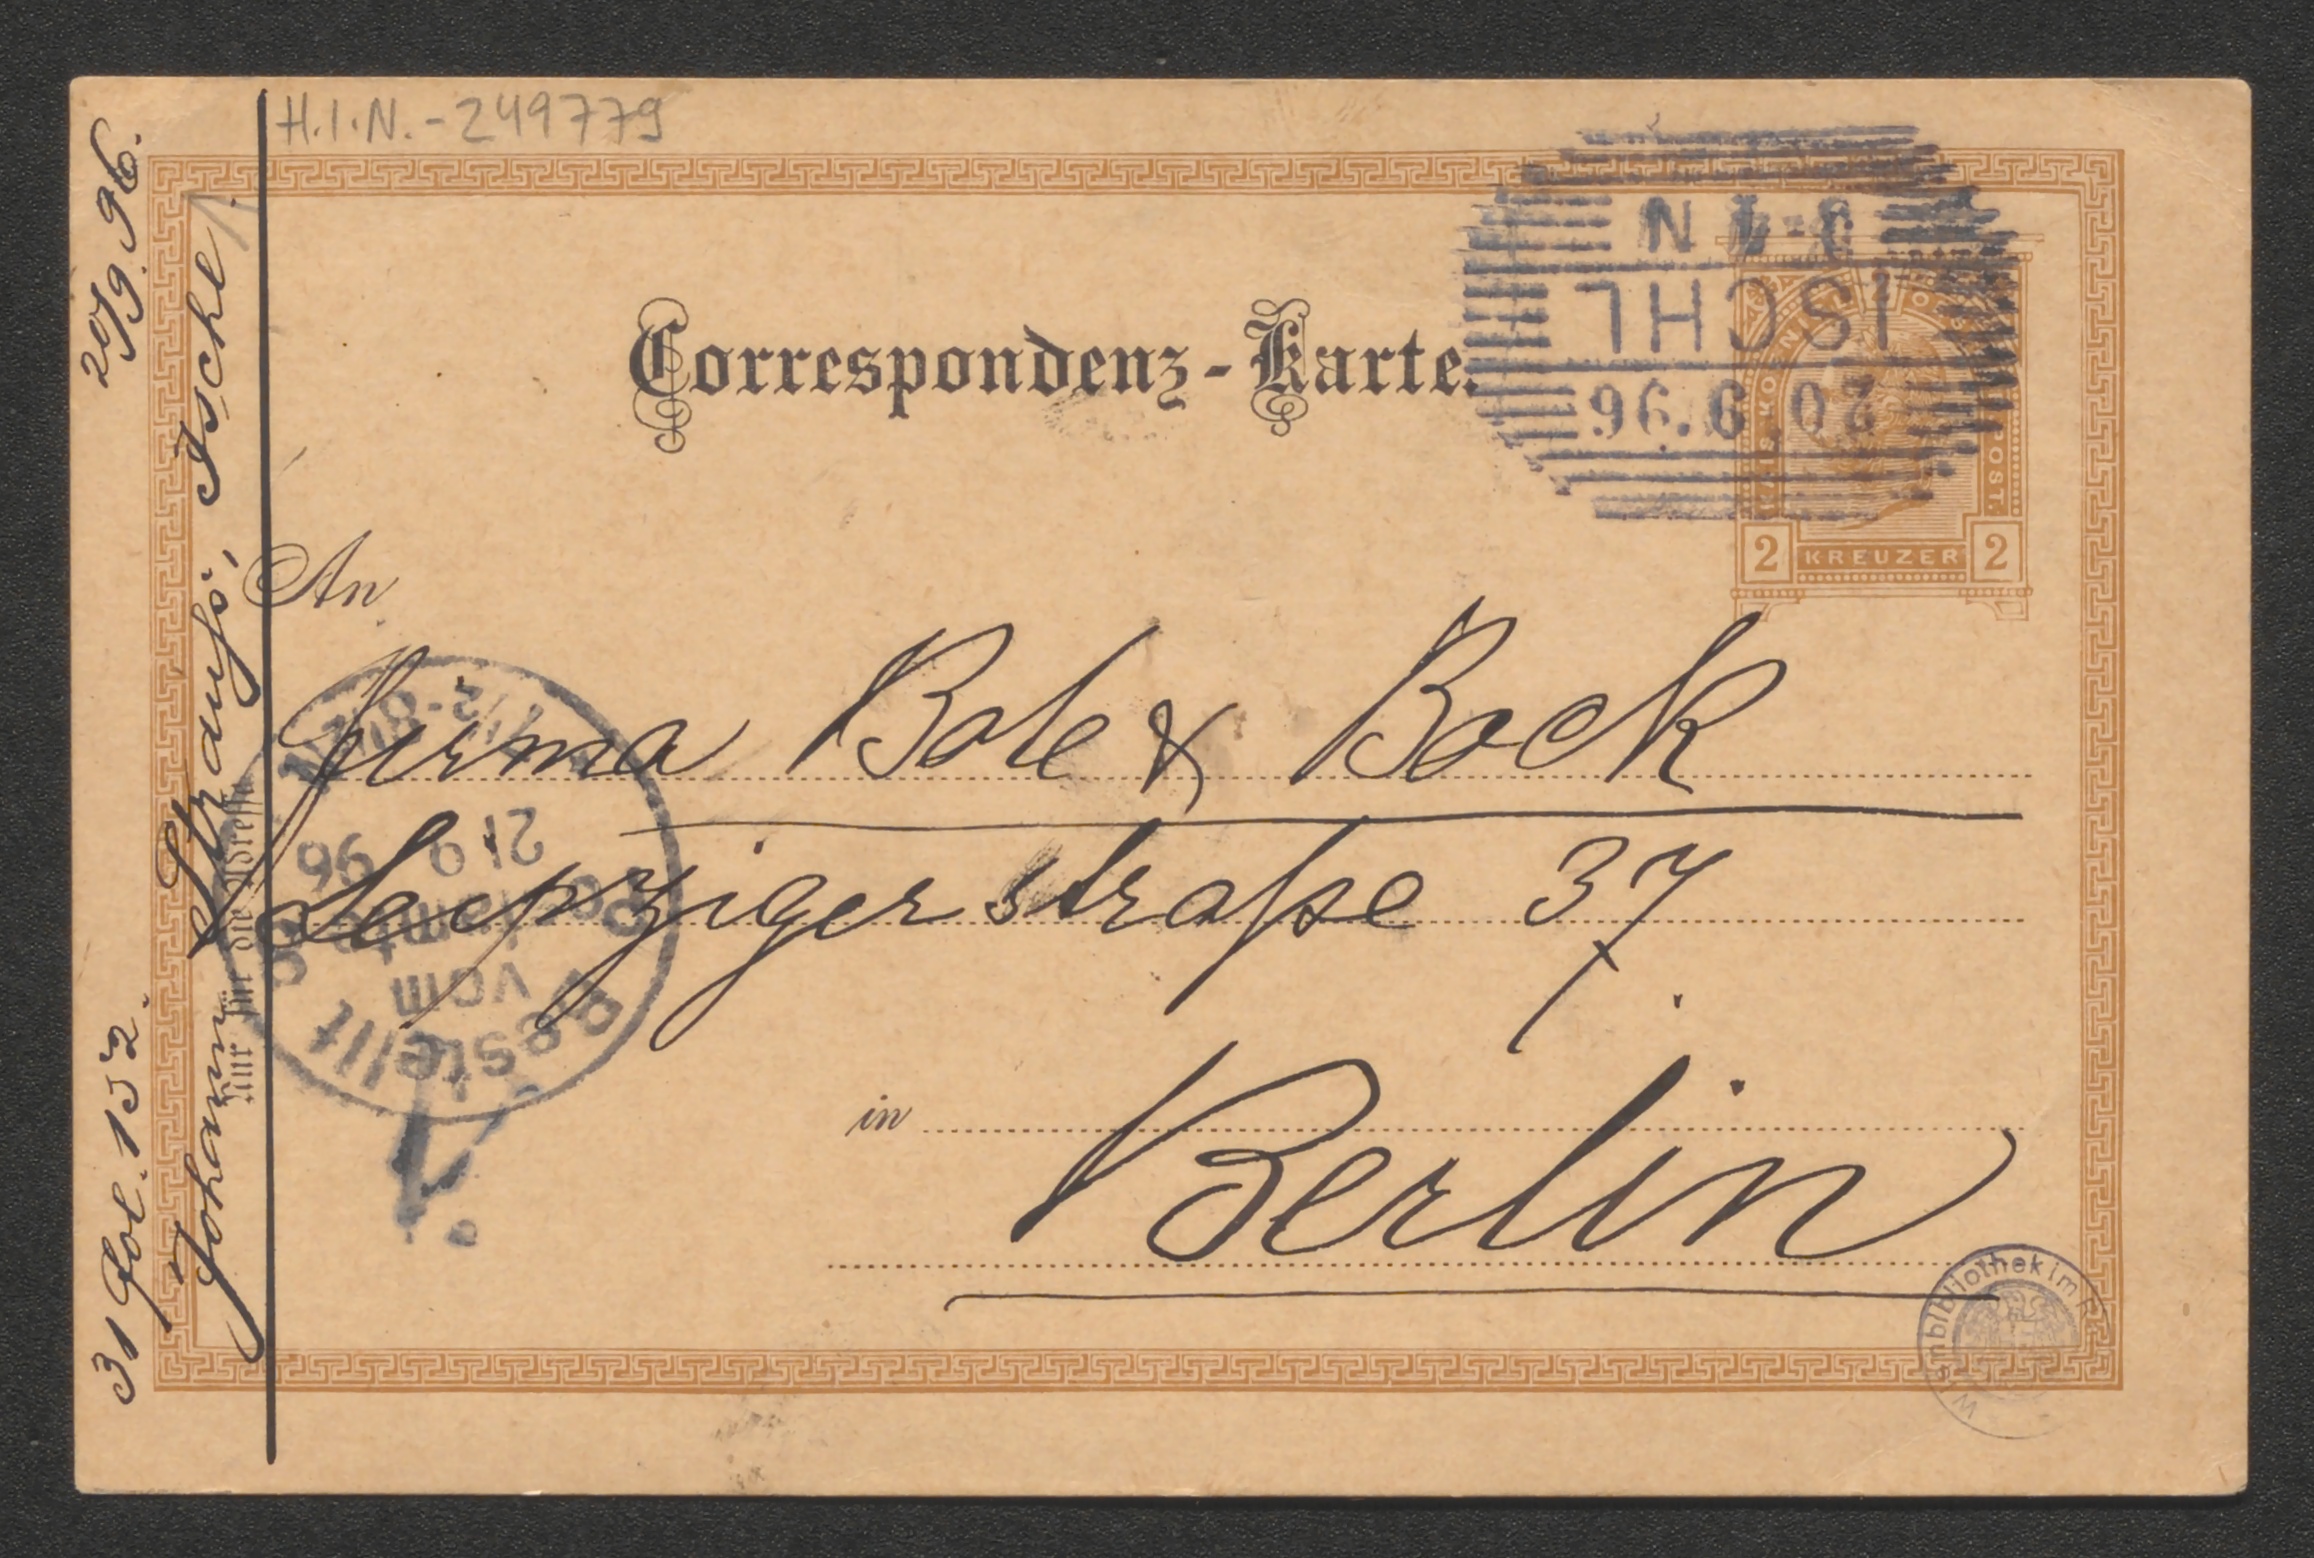 H.I.N.-249779
Correspondenz-Karte.
ISCHL
20.9.96
2 KREUZER 2
An
Firma Bote & Bock
Leipzigerstraße 37
in
Berlin
20/9.96.
Johann Strauß, Ischl
Nur für die Adresse
31 Fol. 152.
Bestellt
vom
Postamte
21 9 96
Wienbibliothek im